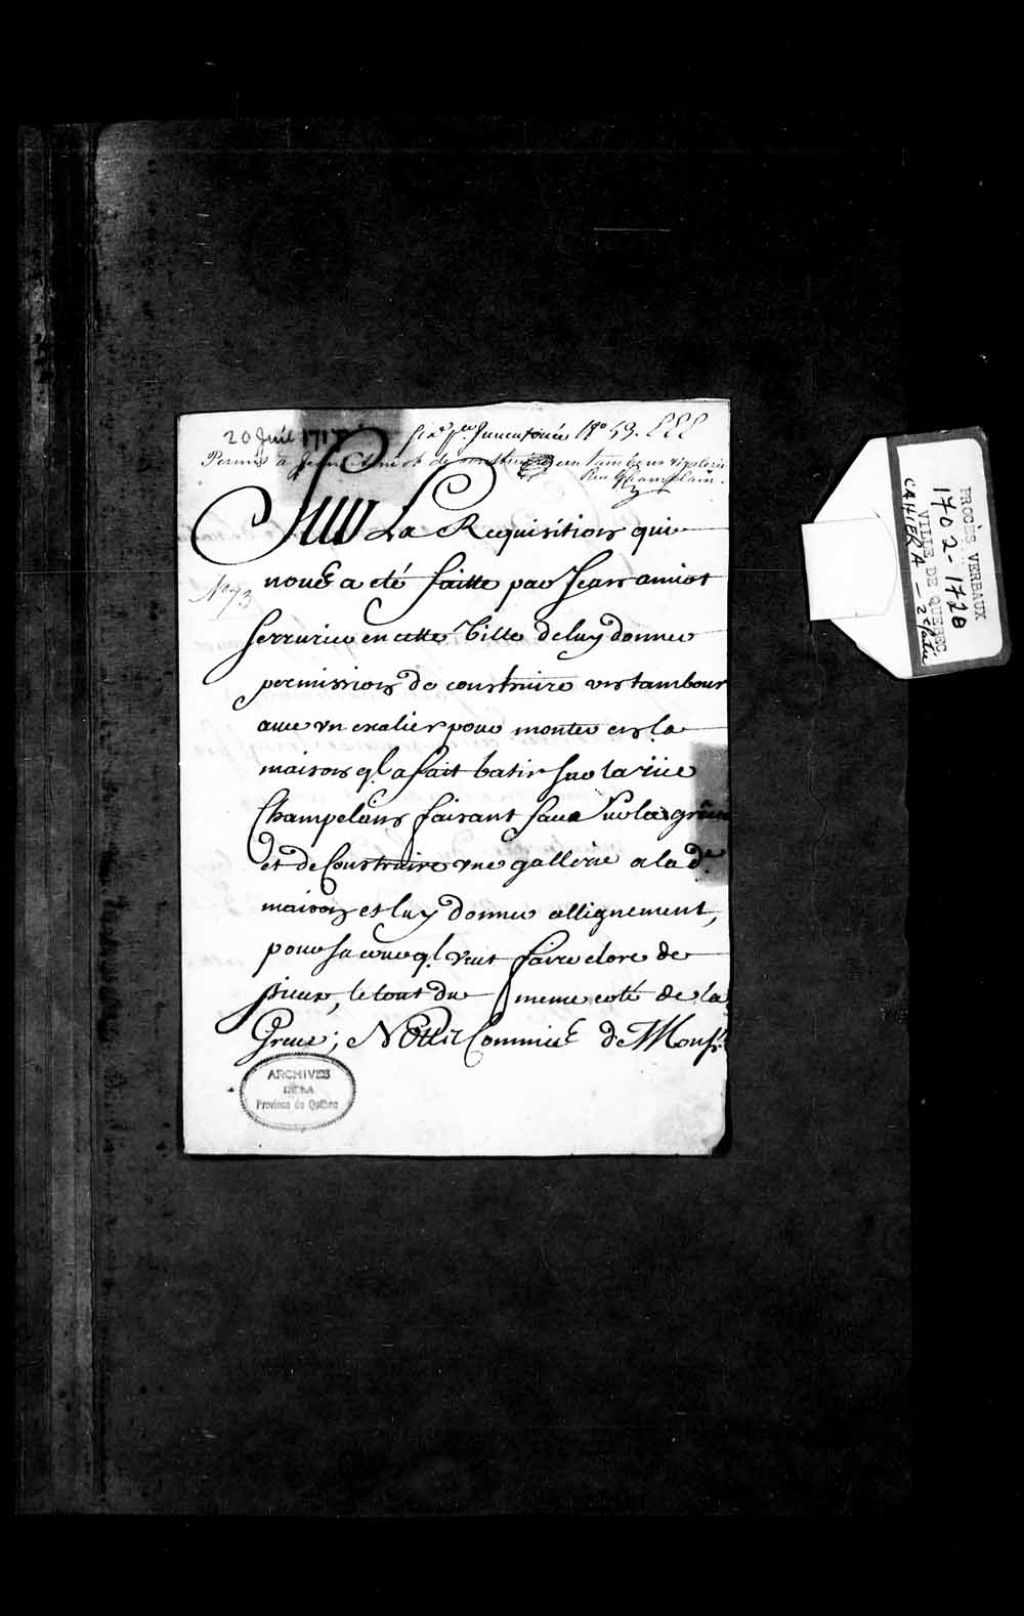 20 Juil 1717
Inventoriée Nº 53. EEE
Permis à Jean Amiot de construire un tambour & galerie
Rue Champlain.
Sur La Requisition qui
Nº 73
nous a eté faitte par Jean amiot
serrurier en cette Ville de luy donner
permission de construire un tambour
avec un escalier pour monter en la
maison ql. a fait batir sur la rüe
Champelain faisant face sur la greve
et de Construire une gallerie a la de.
maison et luy donner allignement,
pour sa cour ql. veut faire clore de
pieux, le tout du meme coté de la
Greve; Nous Commis de Monsr.
ARCHIVES
DE LA
Province de Québec
PROCÈS VERBAUX
1702-1728
VILLE DE QUEBEC
CAHIER A - 2e partie